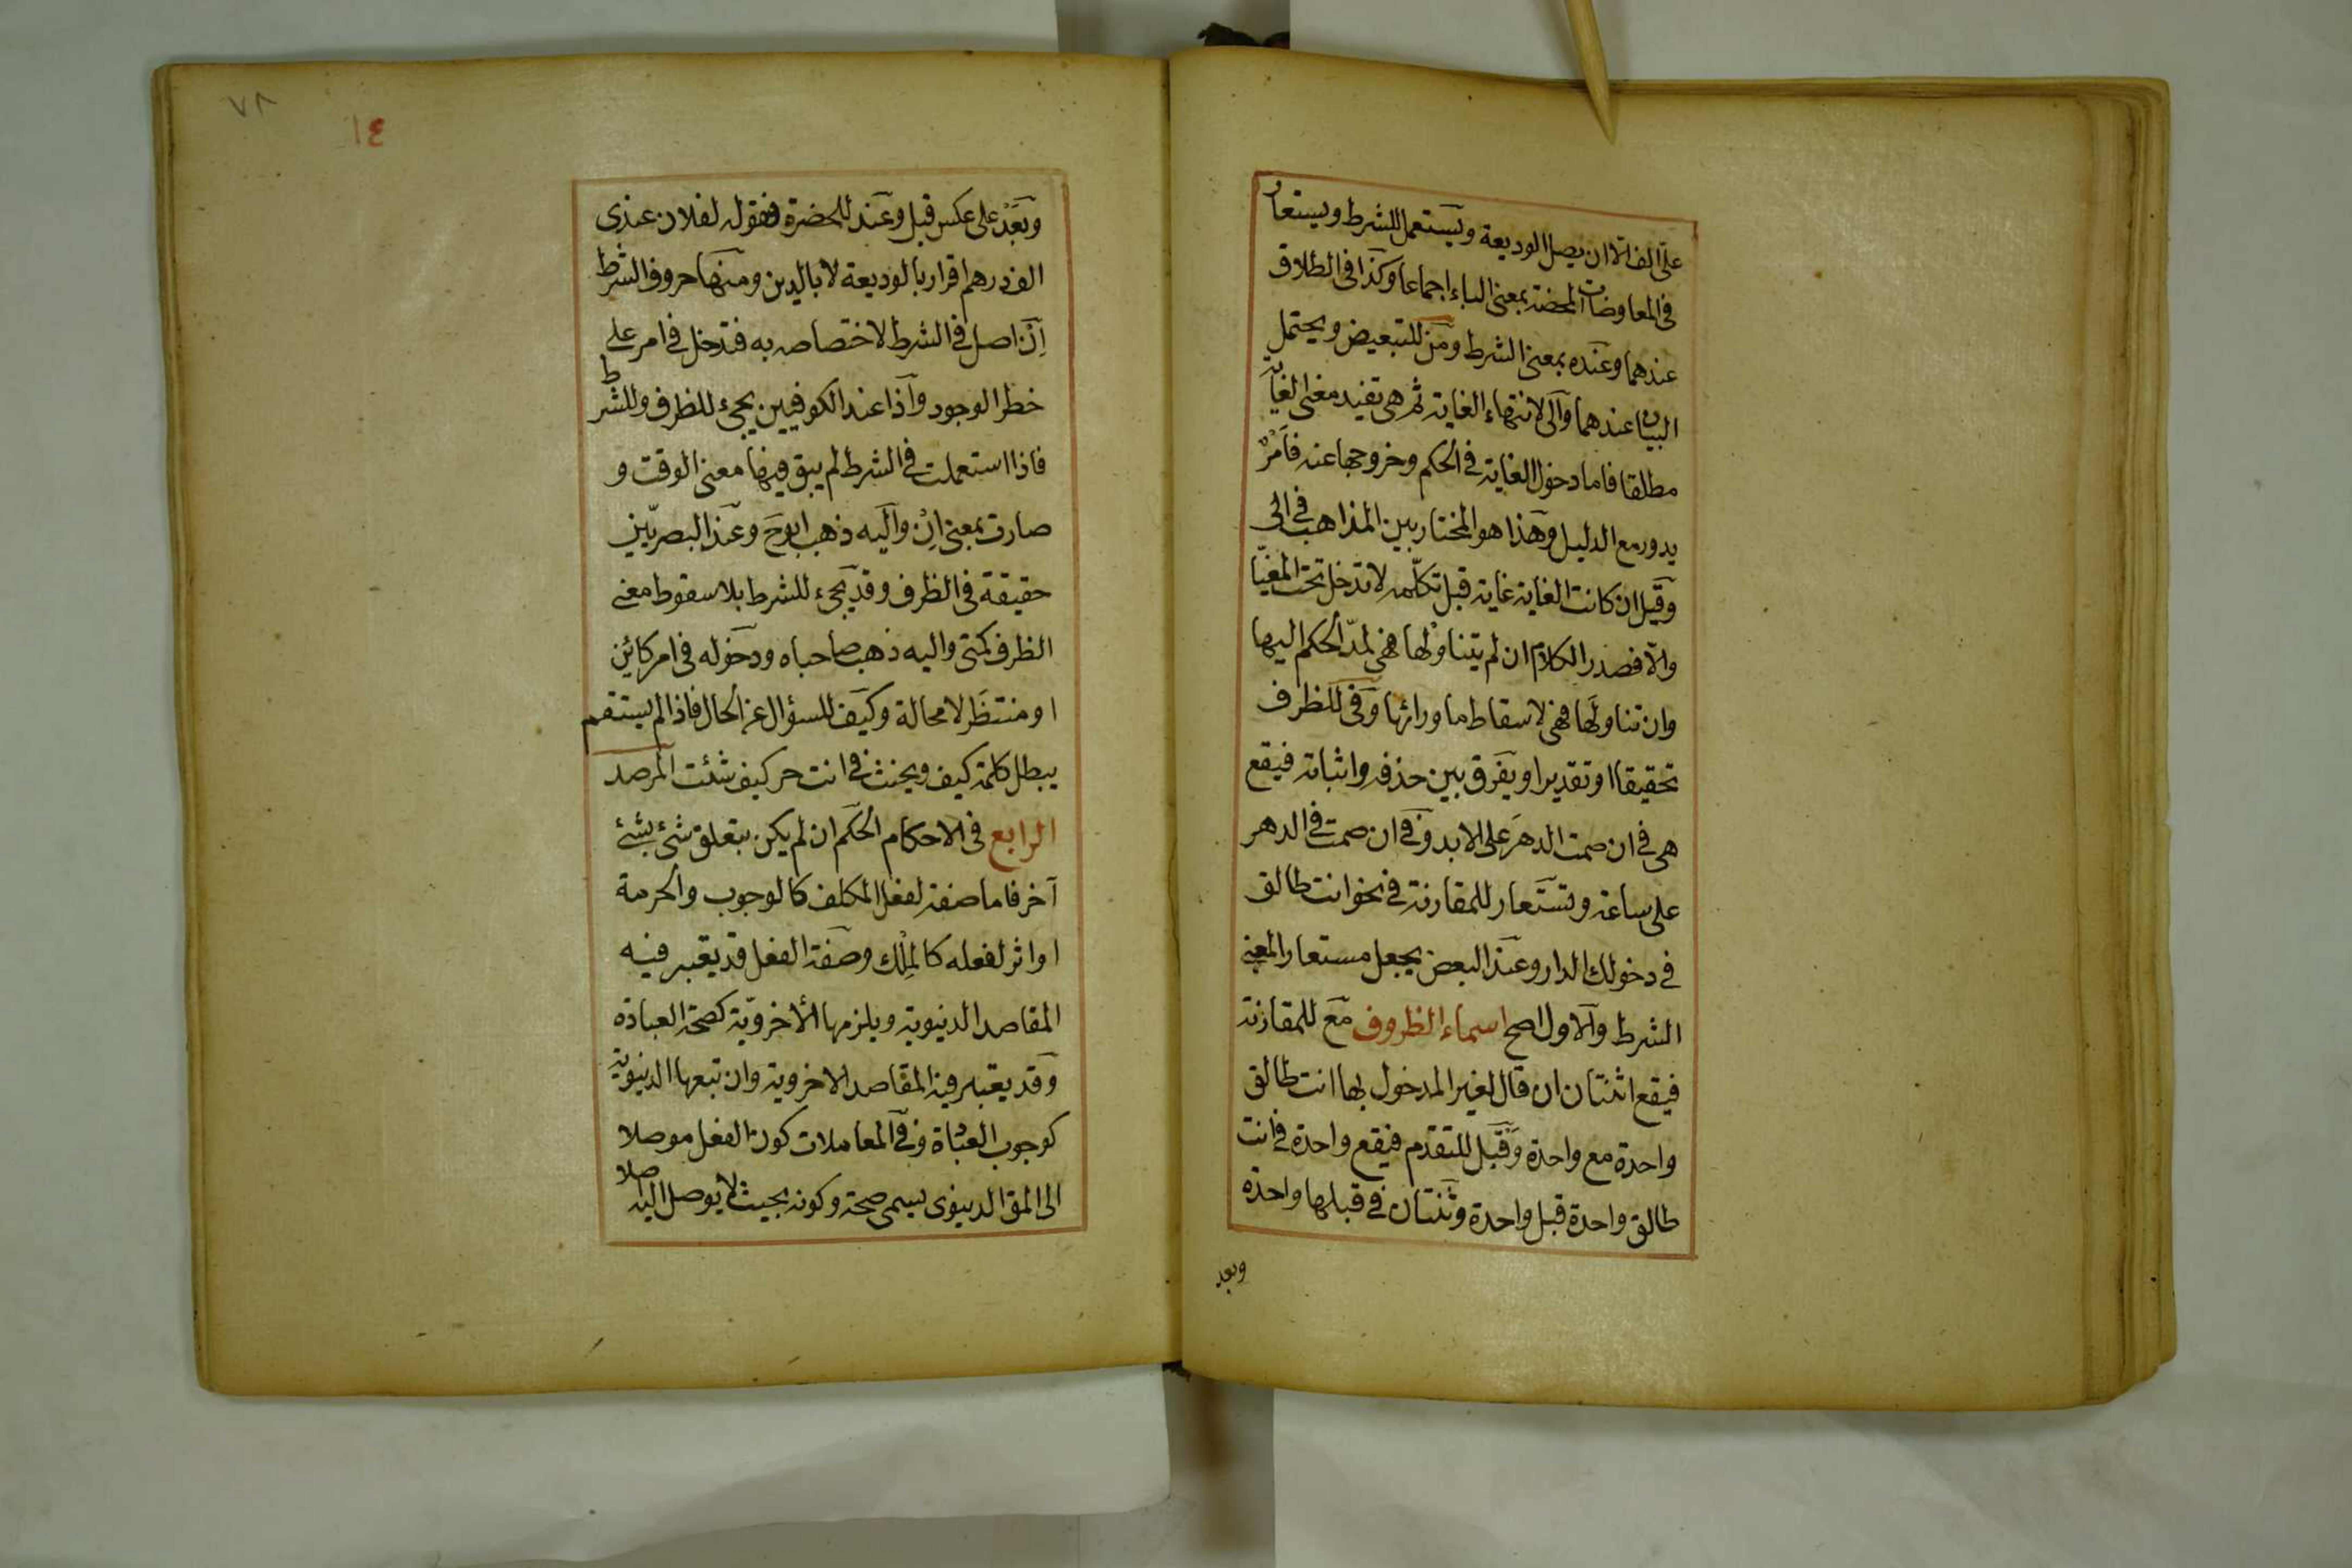 على الف الا ان يصل الوديعة ويستعمل للشرط ويستعار
فى المعاوضات المحضة بمعنى الباء اجماعا وكذا فى الطلاق
عندهما وعنده بمعنى الشرط ومن للتبعيض ويحتمل
البيان عندهما والى لانتهاء الغاية ثم هى تفيد معنى الغاية
مطلقا فاما دخول الغاية فى الحكم وخروجها عنه فأمرٌ
يدور مع الدليل وهذا هو المختار بين المذاهب فى الى
وقيل ان كانت الغاية غاية قبل تكلّمه لا تدخل تحت المغيّا
والّا فصدر الكلام ان لم يتناولها فهى لمدّ الحكم اليها
وان تناولها فهى لاسقاط ما ورائها وفى للظرف
تحقيقا او تقديرا ويفرق بين حذفه واثباته فيقع
هى فى ان صمت الدهرَ على الابد وفى ان صمت فى الدهر
على ساعة وتستعار للمقارنة فى نحو انت طالق
فى دخولك الدار وعند البعض يجعل مستعارا لمعنى
الشرط والاول اصح اسماء الظروف مع للمقارنة
فيقع اثنتان ان قال لغير المدخول بها انت طالق
واحدة مع واحدة وقبل للتقدم فيقع واحدة فى انت
طالق واحدة قبل واحدة وثنتان فى قبلها واحدة
وبعد
٧٨
١٤
وبَعْد على عكس قبل وعند للحضرة فقوله لفلان عندى
الف درهم اقرار بالوديعة لا بالدين ومنها حروف الشرط
اِنْ اصل فى الشرط لاختصاصه به فتدخل فى امر على
خطر الوجود واذا عند الكوفيين يجىء للظرف وللشرط
فاذا استعملت فى الشرط لم يبق فيها معنى الوقت و
صارت بمعنى اِنْ واليه ذهب ابوحَ وعند البصريّين
حقيقة فى الظرف وقد يجىء للشرط بلا سقوط معنى
الظرف كمتى واليه ذهب صاحباه ودخوله فى امر كائن
او منتظَر لا محالة وكيف للسؤال عن الحال فاذا لم يستقم
يبطل كلمة كيف ويحنث فى انت حر كيف شئت المرصد
الرابع فى الاحكام الحكم ان لم يكن بتعلق شئ بشئ
آخر فاما صفة لفعل المكلف كالوجوب والحرمة
او اثر لفعله كالمِلْك وصفة الفعل قد يعتبر فيه
المقاصد الدنيوية ويلزمها الأخرويّة كصحة العبادة
وقد يعتبر فيه المقاصد الاخروية وان تبعها الدنيوية
كوجوب العبادة وفى المعاملات كون الفعل موصلا
الى المق الدنيوى يسمى صحة وكونه بحيث لا يوصل اليه اصلا